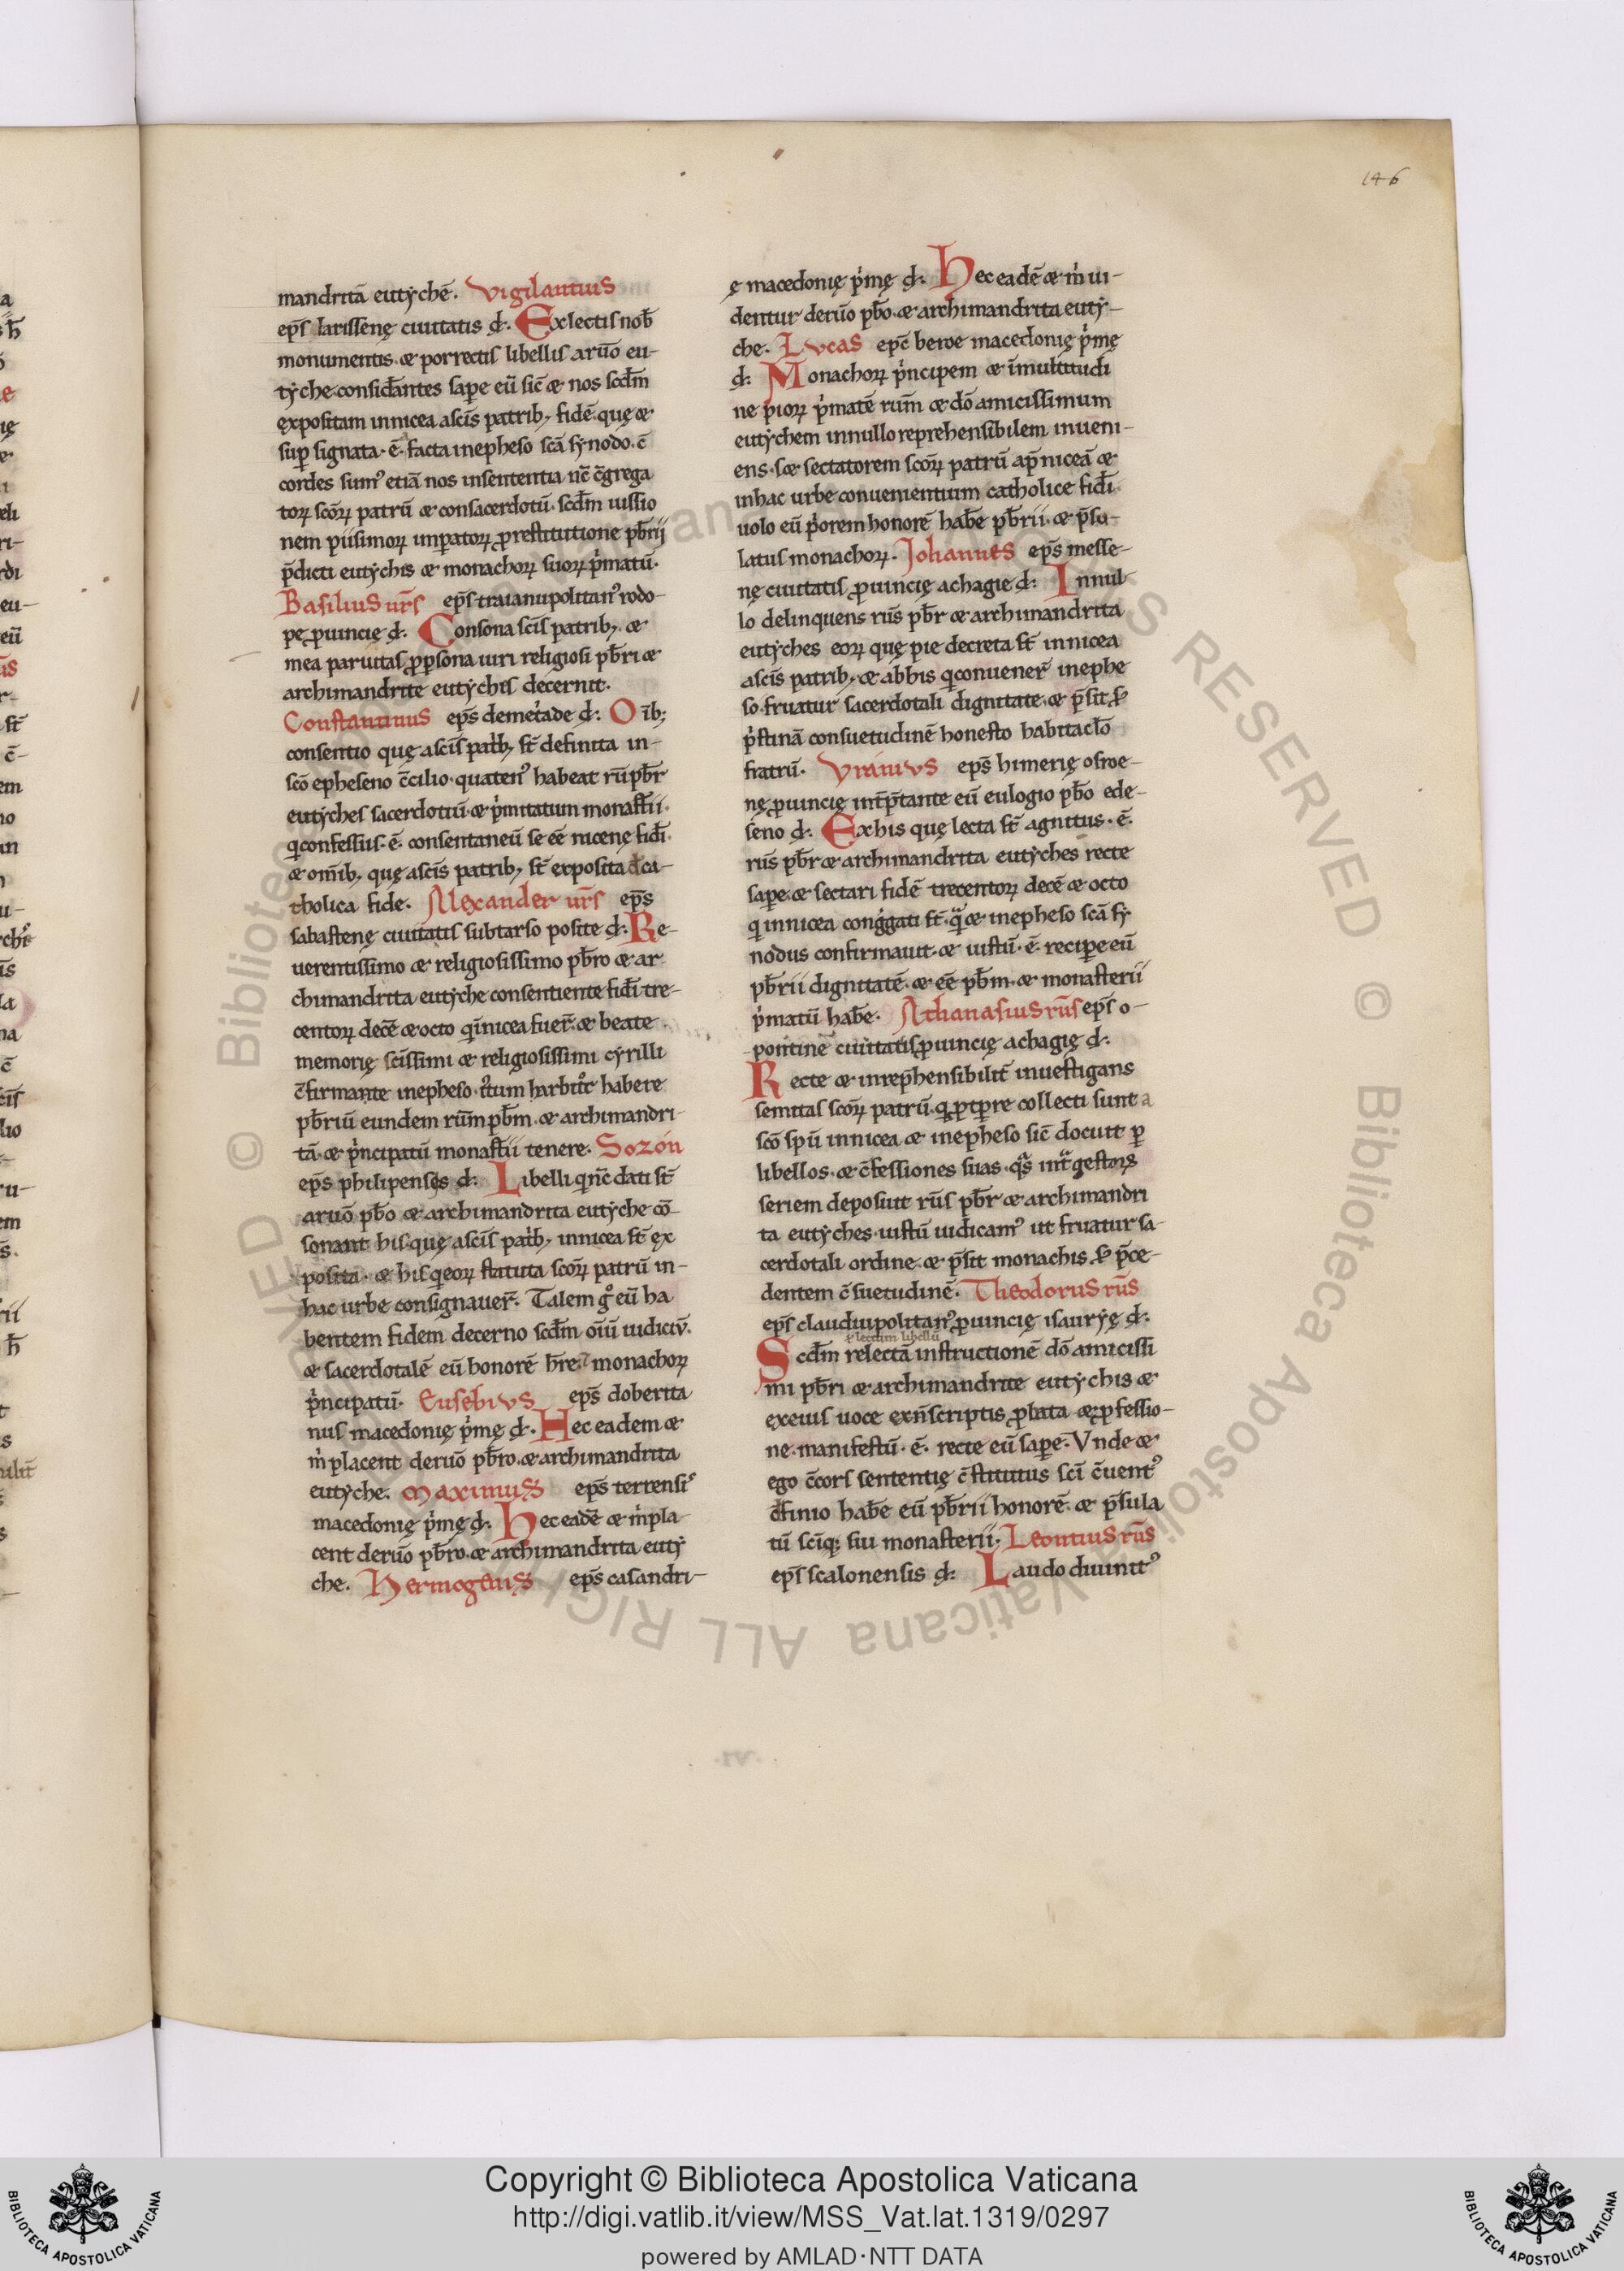 146
mandritā eutychē. Vigilantius
ep̄s larissenę ciuitatis d̄. Ex lectis nob̄
monumentis. & porrectis libellis a ruō eu-
tyche. consid̄antes sapꝑe eū sic̄ & nos scd̄m
expositam in nicea a sc̄is patrib; fidē. quę &
suꝑ signata. ē. facta in epheso sc̄a synodo. c̄
cordes sumꝰ etiā nos in sententia uc̄ c̄grega
toꝝ sc̄oꝝ patrū & consacerdotū. scd̄m iussio
nem piisimoꝝ inꝑatoꝝ ꝓ restitutione pb̄rii
p̄dicti eutychis & monachoꝝ suoꝝ pͥmatū.
Basilius ur̄s ep̄s traianupolitanꝰ rodo-
pę ꝓuincię d̄. Consona sc̄is patrib;. &
mea paruitas ꝓ ꝑsona uiri religiosi pb̄ri &
archimandrite eutychis decernit.
Constantinus ep̄s demetͥade d̄: Oīb;
consentio quę a sc̄is patͥb; st̄ definita in-
sc̄o epheseno c̄cilio. quatenꝰ habeat rū pb̄r
eutyches sacerdotiū. & pͥmitatum monast̄ii.
qͥ confessus. ē. consentaneū se eē nicenę fid̄i.
& om̄ib; quę a sc̄is patrib; st̄ exposita d̄ ca-
tholica fide. Alexander ur̄s ep̄s
sabastenę ciuitatis sub tarso posite d̄: Re-
uerentissimo & religiosissimo pb̄ro & ar
chimandrita eutyche consentiente fid̄i tre-
centoꝝ decē & octo qͥ ī nicea fuer̄. & beate
memorię sc̄issimi & religiosissimi cyrilli
c̄firmante in epheso. habere
pb̄riū eundem rūm pb̄m. & archimandri-
tā. & pͥncipatū monast̄ii tenere. Sozon
ep̄s philipensęs d̄: Libelli qͥ nc̄ dati st̄
a ruō pb̄o & archimandrita eutyche cō-
sonant his. quę a sc̄is patͥb; in nicea st̄ ex
posita. & his qͥ eoꝝ statuta sc̄oꝝ patrū in-
hac urbe consignauer̄. Talem gͦ eū ha
bentem fidem decerno scd̄m oīū iudiciū.
& sacerdotalē eū honorē h̄re. ⁊ monachoꝝ
pͥncipatū. Eusebius ep̄s doberita
nus macedonię pͥmę d̄. Hec eadem &
mͥ placent de ruō pb̄ro. & archimandrita
eutyche. Maximus ep̄s terrensiꝰ
macedonię pͥmę d̄. Hec eadē & mͥ pla-
cent de ruō pb̄ro. & archimandrita euty
che. Hermogenis ep̄s casandri-
ę macedonię pͥmę d̄. Hec eadē & mͥ ui-
dentur de ruō pb̄o. & archimandrita euty-
che. Lucas ep̄c beroe macedonię pͥmę
d̄: Monachoꝝ pͥncipem & ī multitudi
ne pioꝝ pͥmatē rūm & dō amicissimum
eutychem in nullo reprehensibilem inueni-
ens. s& sectatorem sc̄oꝝ patrū ap̄ niceā &
in hac urbe conuenientium catholice fid̄i.
uolo eū pͥorem honorē hab̄e pb̄rii. & p̄su-
latus monachoꝝ. Johannes ep̄s messe-
nę ciuitatis ꝓuincię achagię d̄: In nul-
lo delinquens rūs pb̄r & archimandrita
eutyches eoꝝ quę pie decreta st̄ in nicea
a sc̄is patrib; & ab his qͥ conuener̄ in ephe
so. fruatur sacerdotali dignitate. & p̄sit
pͥstinā consuetudinē honesto habitac̄lo
fratrū. Uranius ep̄s himerię osroe-
nę ꝓuincię int̄p̄tante eū eulogio pb̄o ede-
seno d̄. Ex his quę lecta st̄ agnitus. ē.
rūs pb̄r & archimandrita eutyches recte
sapꝑe & sectari fidē trecentoꝝ decē & octo
qͥ in nicea congͥgati st̄. qͣ & in epheso sc̄a sy
nodus confirmauit. & iustū. ē. recipere eū
pb̄rii dignitatē. & eē pb̄m. & monasterii
pͥmatū hab̄e. Athanasius rūs ep̄s o-
pontinē ciuitatis ꝓuincię achagię d̄:
Recte & inrep̄hensibilit̄ inuestigans
semitas sc̄oꝝ patrū. collecti sunt a
sc̄o sp̄ū in nicea & in epheso sic̄ docuit ꝑ
libellos. & c̄fessiones suas. qͣs intͣ gestoꝝ
seriem deposuit rūs pb̄r & archimandri
ta eutyches. iustū iudicamꝰ ut fruatur sa-
cerdotali ordine. & p̄sit monachis p̄ce-
dentem c̄suetudinē. Theodorus rūs
ep̄s claudiupolitanꝰ ꝓuincię isaurię d̄:
& lectum libellū
Scd̄m relectā instructionē dō amicissi
mi pb̄ri & archimandrite eutychis &
ex eius uoce ex n̄scriptis ꝓlata & ꝓfessio-
ne. manifestū. ē. recte eū sapꝑe. Unde &
ego c̄cors sententię c̄stitutus sc̄i c̄uentꝰ
d̄finio hab̄e eū pb̄rii honorē. & p̄sula
tū sc̄iq; sui monasterii. Leontius rūs
ep̄s scalonensis d̄: Laudo diuinitꝰ
© Biblioteca Apostolica Vaticana ALL RIGHTS RESERVED © Biblioteca Apostolica Vaticana ALL RIGHTS RESERVED
Copyright © Biblioteca Apostolica Vaticana
http://digi.vatlib.it/view/MSS_Vat.lat.1319/0297
powered by AMLAD·NTT DATA
BIBLIOTECA APOSTOLICA VATICANA
BIBLIOTECA APOSTOLICA VATICANA